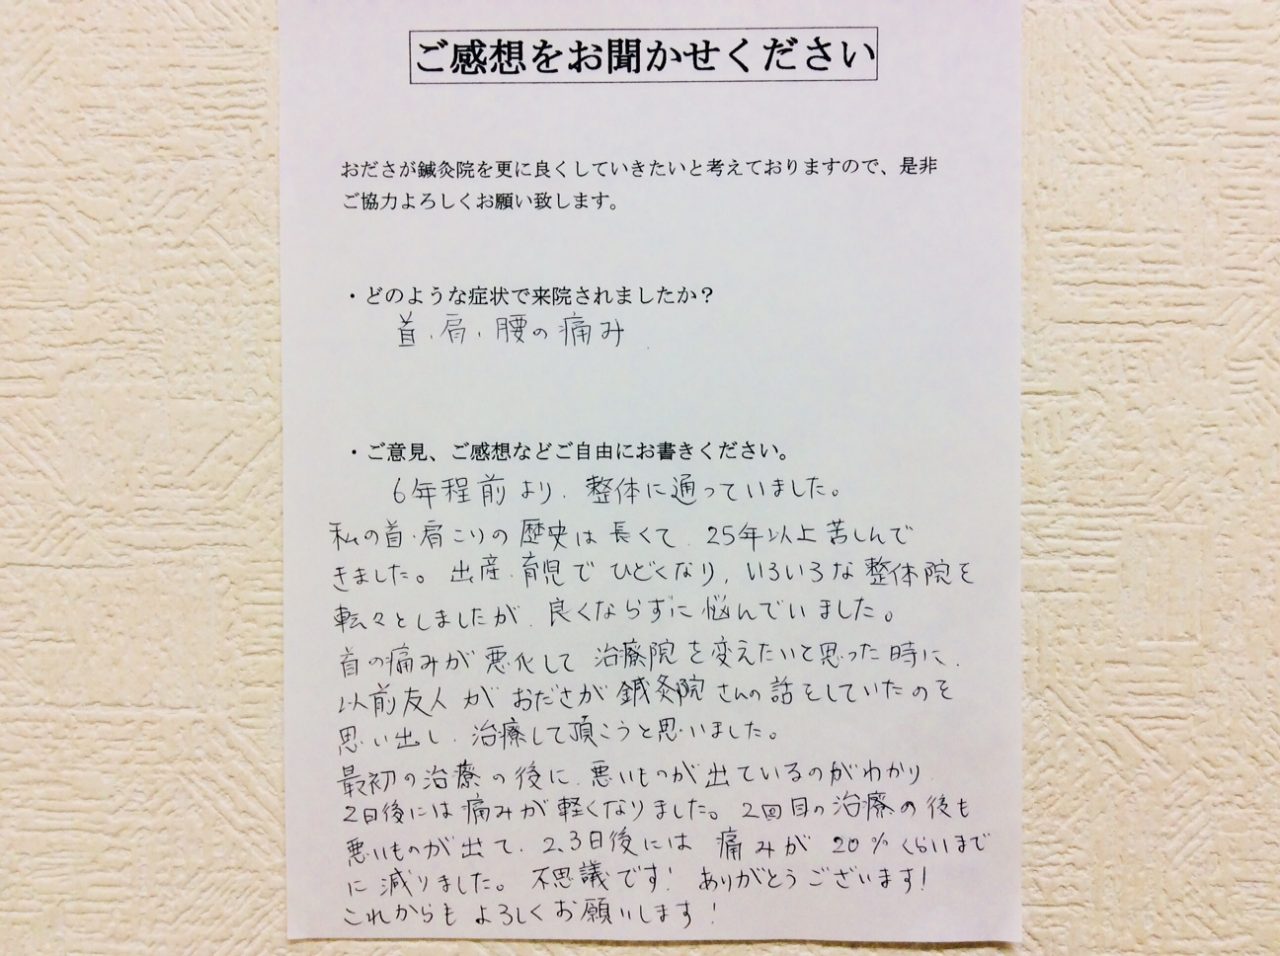 ご感想をお聞かせください
おださが鍼灸院を更に良くしていきたいと考えておりますので、是非
ご協力よろしくお願い致します。
・どのような症状で来院されましたか？
首、肩、腰の痛み
・ご意見、ご感想などご自由にお書きください。
6年程前より、整体に通っていました。
私の首、肩こりの歴史は長くて、25年以上苦しんで
きました。出産、育児でひどくなり、いろいろな整体院を
転々としましたが、良くならずに悩んでいました。
首の痛みが悪化して治療院を変えたいと思った時に、
以前友人がおださが鍼灸院さんの話をしていたのを
思い出し、治療して頂こうと思いました。
最初の治療の後に、悪いものが出ているのがわかり
2日後には痛みが軽くなりました。2回目の治療の後も
悪いものが出て、2、3日後には痛みが20％くらいまで
に減りました。不思議です！ありがとうございます！
これからもよろしくお願いします！